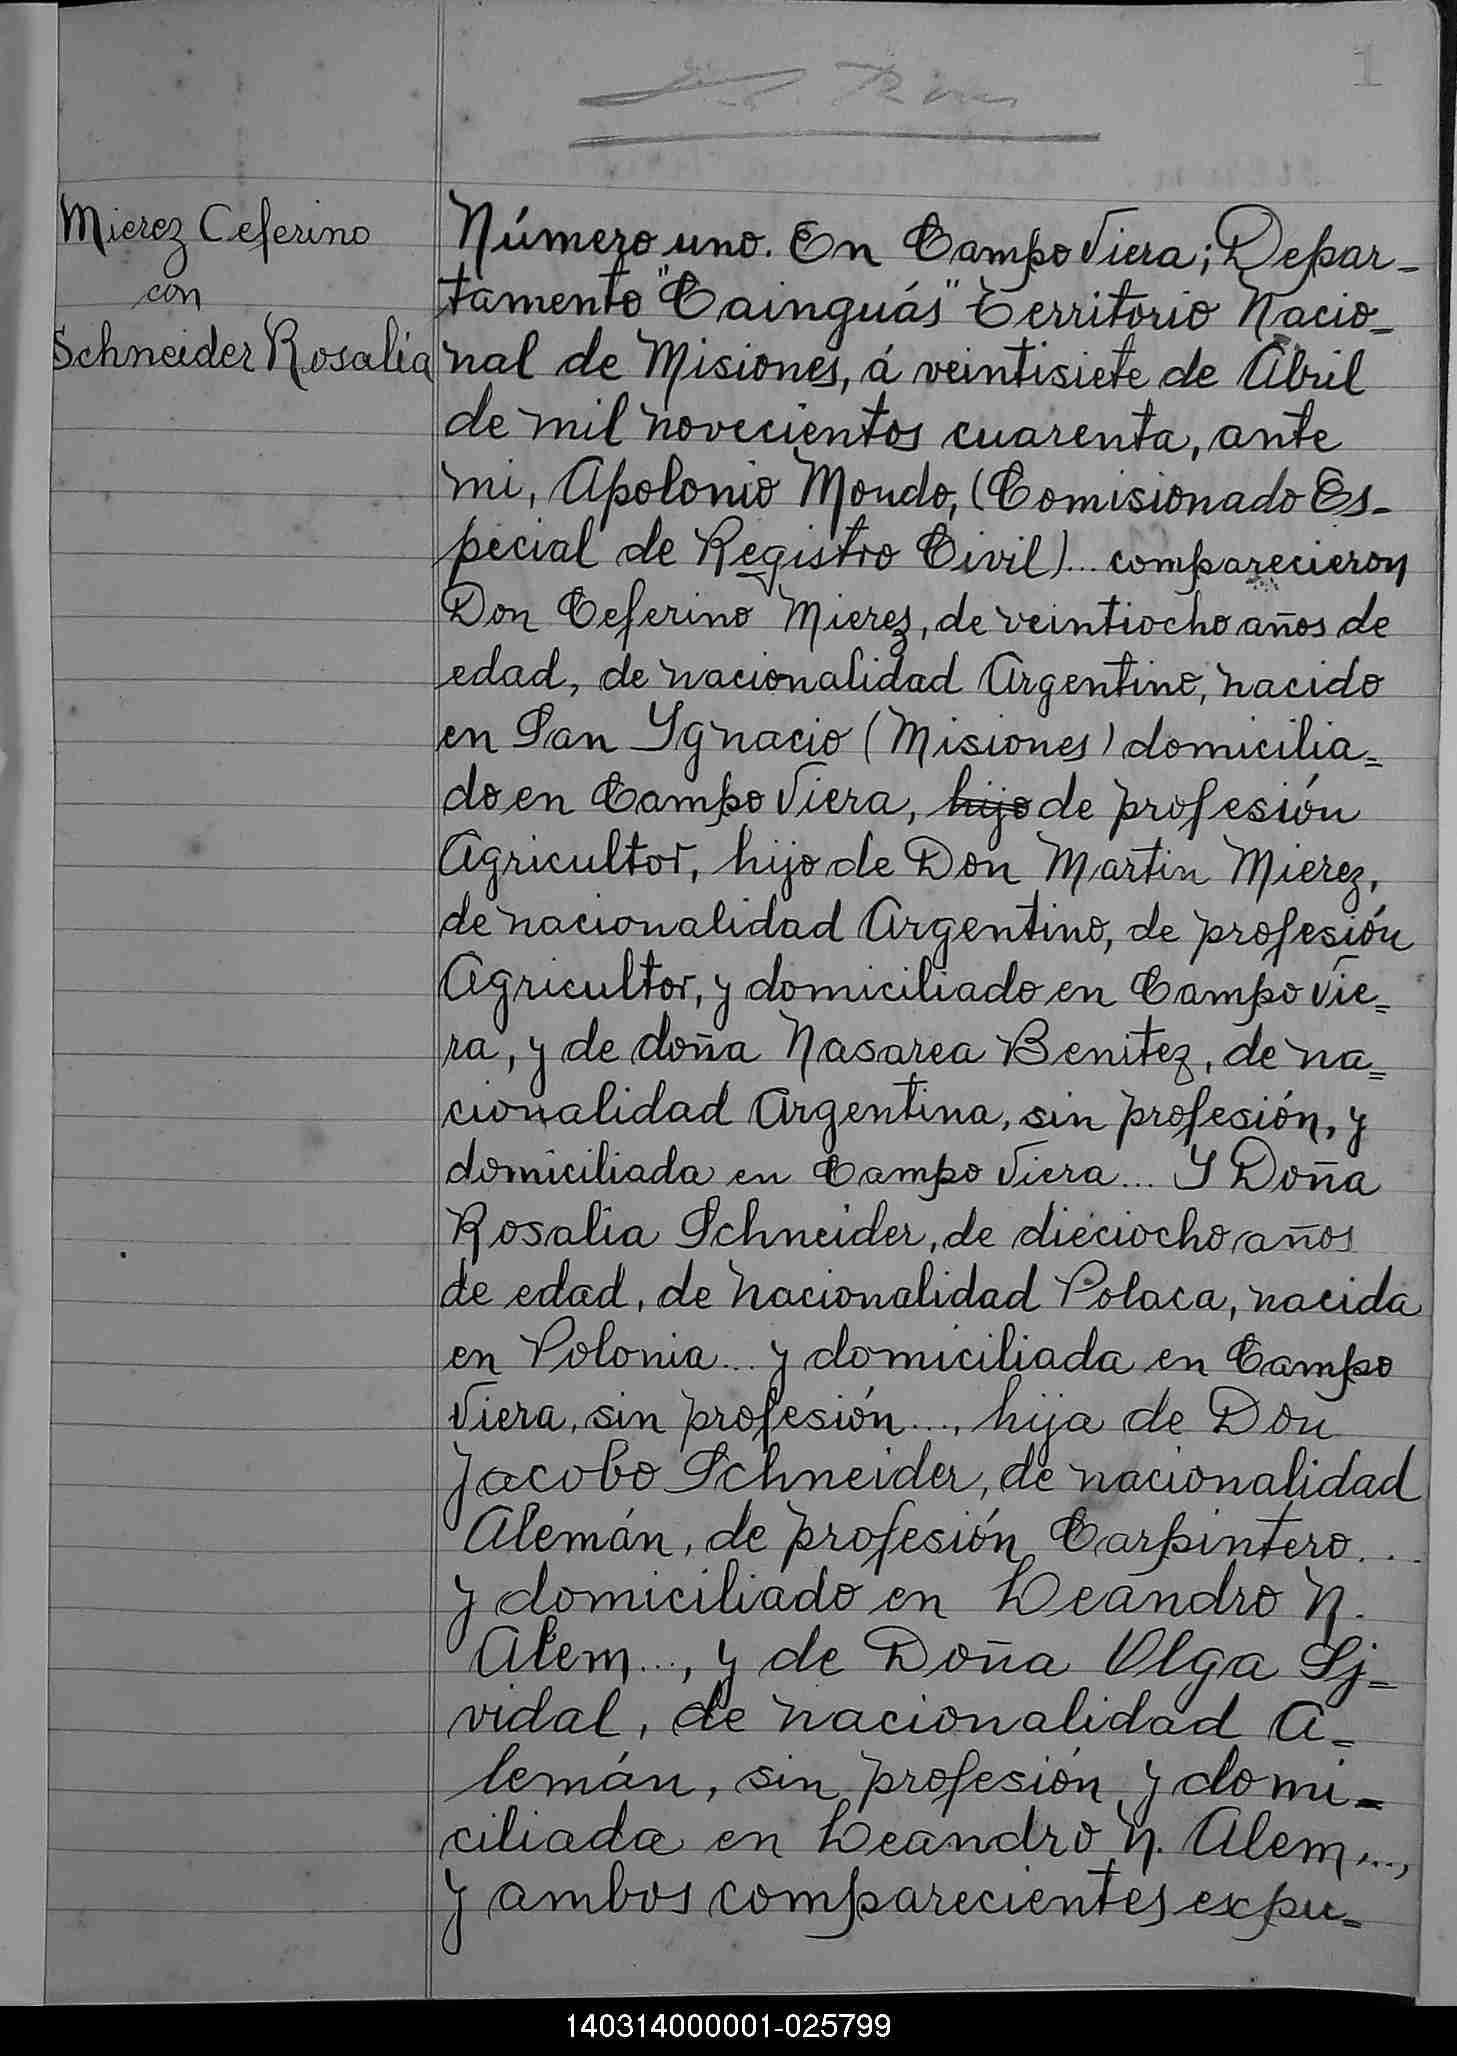 1
Mierez Ceferino
con
Schneider Rosalía
Número uno. En Campo Viera; Depar-
tamento "Cainguás" Territorio Nacio-
nal de Misiones, á veintisiete de Abril
de mil novecientos cuarenta, ante
mi, Apolonio Mondo, (Comisionado Es-
pecial de Registro Civil)... comparecieron
Don Ceferino Mierez, de veintiocho años de
edad, de nacionalidad Argentino, nacido
en San Ygnacio (Misiones) domicilia=
do en Campo Viera, hijo de profesión
Agricultor, hijo de Don Martin Mierez,
de nacionalidad Argentino, de profesión
Agricultor, y domiciliado en Campo Vie=
ra, y de doña Nasarea Benitez, de na=
cionalidad Argentina, sin profesión, y
domiciliada en Campo Viera... Y Doña
Rosalia Schneider, de dieciocho años
de edad, de nacionalidad Polaca, nacida
en Polonia... y domiciliada en Campo
Viera, sin profesión..., hija de Don
Jacobo Schneider, de nacionalidad
Alemán, de profesión Carpintero...
y domiciliado en Leandro N.
Alem..., y de Doña Olga Sj=
vidal, de nacionalidad A=
lemán, sin profesión y domi=
ciliada en Leandro N. Alem...,
y ambos comparecientes expu=
140314000001-025799